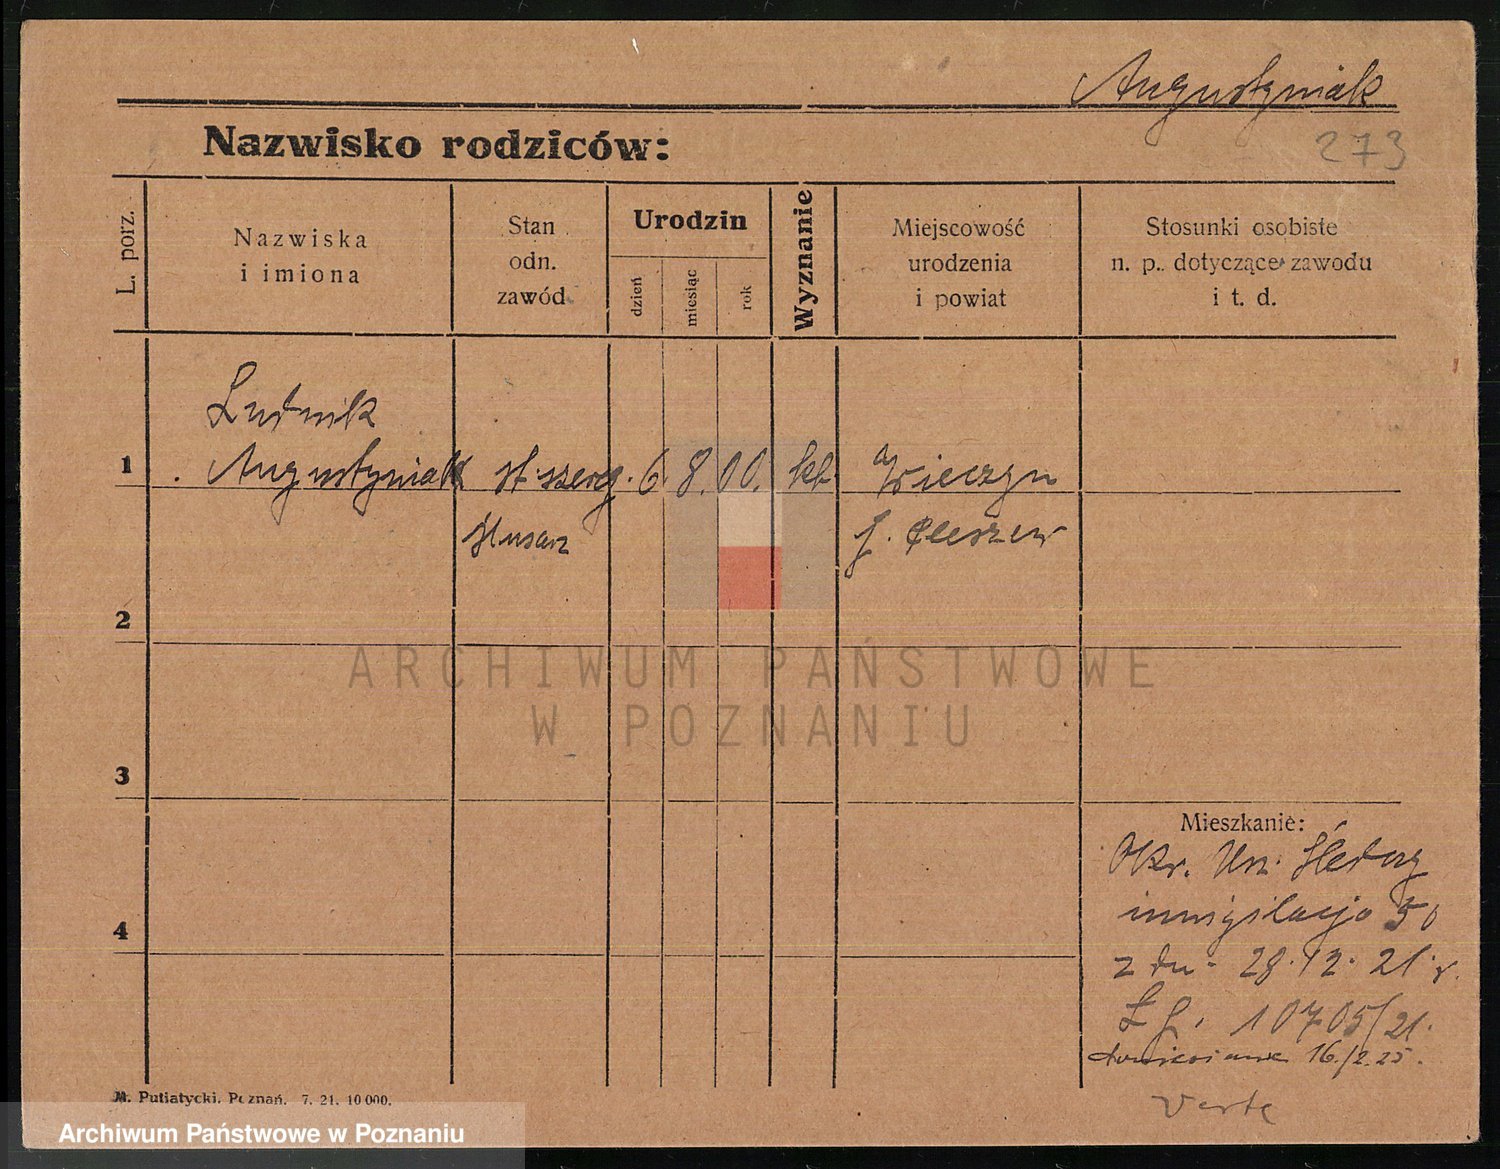 Augustyniak
Nazwisko rodziców:
273
L. porz.
Nazwiska
i imiona
Stan
odn.
zawód
Urodzin
dzień
miesiąc
rok
Wyznanie
Miejscowość
urodzenia
i powiat
Stosunki osobiste
n. p. dotyczące zawodu
i t. d.
1
Ludwik
Augustyniak
st. szereg.
6. 8. 00.
kt
Wieczyn
ślusarz
p. Pleszew
2
ARCHIWUM PAŃSTWOWE
W POZNANIU
3
Mieszkanie:
Okr. Urz. Śledczy
inwigilacja 50
z dn. 28. 12. 21. r.
10705/21.
16./2.25.
4
verte
M. Putiatycki. Poznań. 7. 21. 10 000.
Archiwum Państwowe w Poznaniu